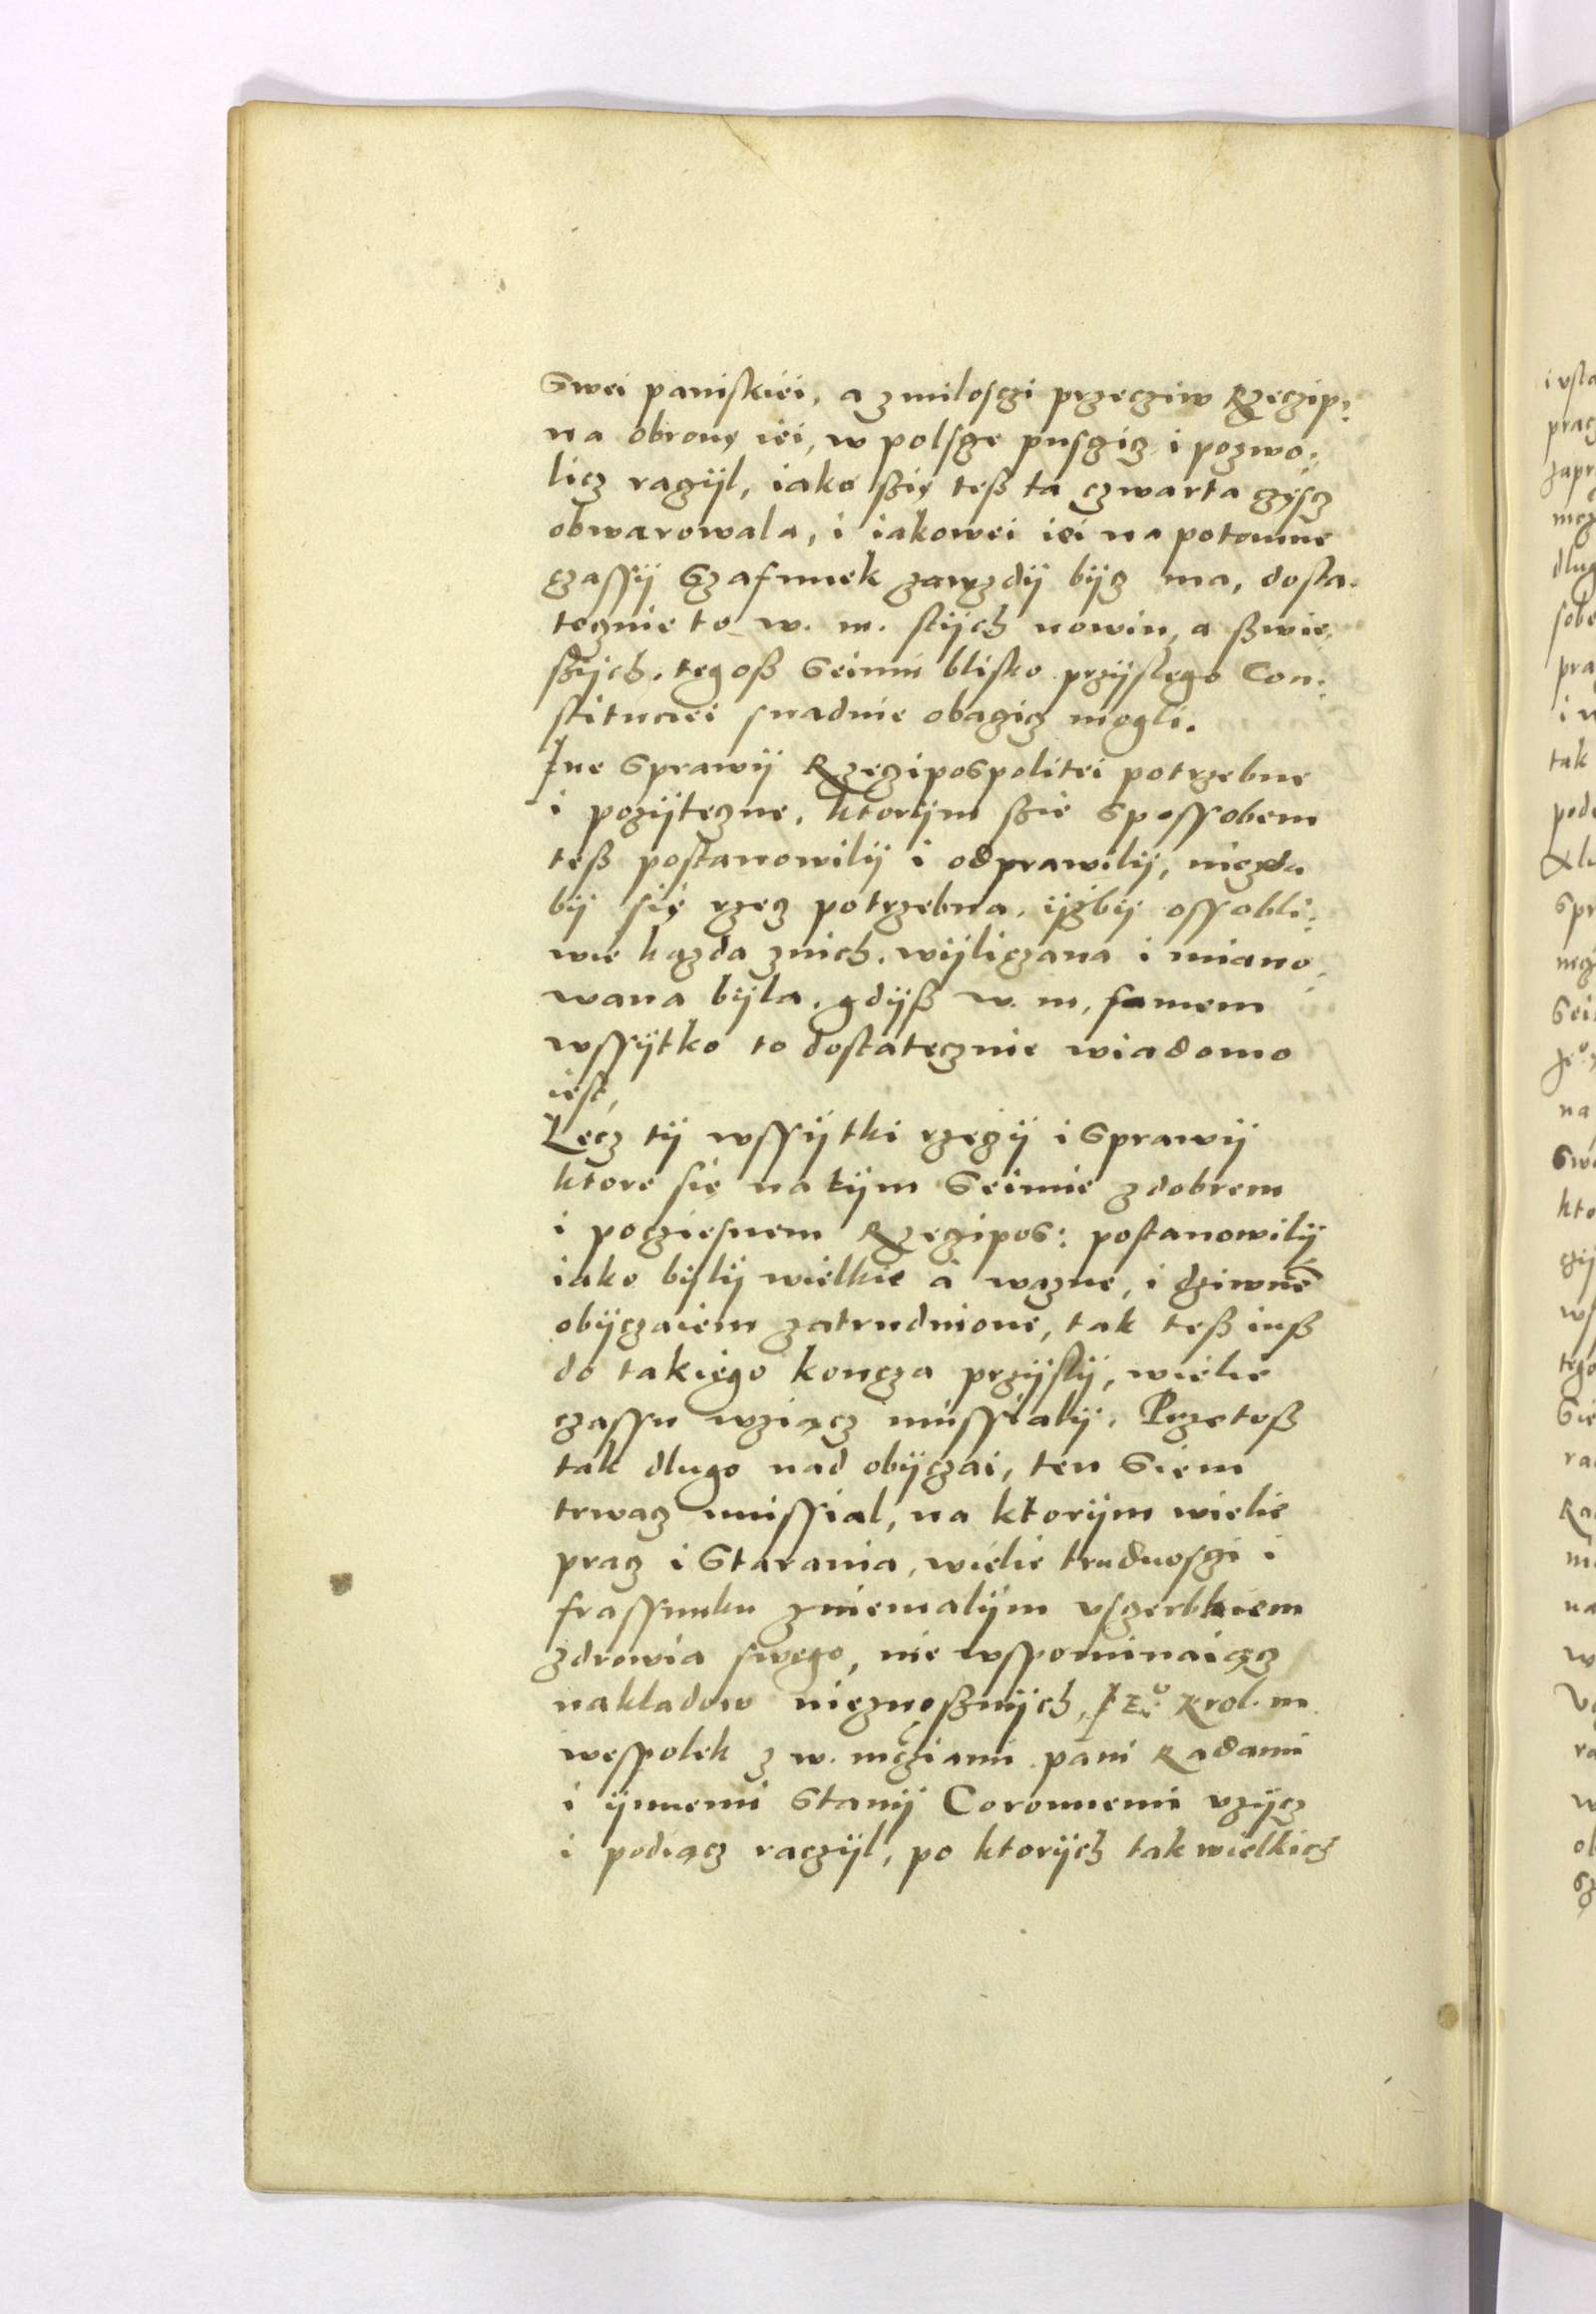 Swei paniskiei, a zmiloszi przecziw Rzeczip:
na obronę iei, w polsze puszicz i pozwo:
licz raczÿl, iako szię teß ta czwarta częscz
obwarowala, i iakowei iei na potomne
czassÿ Szafunek zawżdÿ bÿcz ma, dosta-
tecznie to w. m. stÿch nowin, a ßwie,
ßÿch, tegoß Seimu blisko przÿslego Con:
stituciei snadnie obaczicz mogli.
Ine Sprawÿ Rzeczipospolitei potrzebne
i pozÿteczne, ktorÿm szie Spossobem
teß postanowilÿ i odprawilÿ, niezda
bÿ się rzecz potrzebna, iżbÿ ossobli:
wie kazda znich, wÿliczana i miano,
wana bÿla, gdÿß w. m, samem
wssÿtko to dostatecznie wiadomo
iest,
Lecz tÿ wssÿtki rzeczÿ i Sprawÿ
ktore się na tÿm Seimie zdobrem
i pocziesnem Rzeczipos: postanowilÿ
iako bÿlÿ wielkie a wazne, i dziwnē
obÿczaiem zatrudnione, tak teß iuß
do takiego koncza przÿslÿ, wielie
czassu wziącz mussialÿ, Przetoß
tak dlugo nad obÿczai, ten Siem
trwacz mussial, na ktorÿm wielie
pracz i Starania, wielie trudnosczi i
frassunku zniemalÿm vszerbkiem
zdrowia swego, nie wspominaiącz
nakladow nieznoßnÿch, JE:º Krol. m.
wespolek z w. mcziami pānī Radami
i ÿnnemi Stanÿ Coronnemi vzÿcz
i podiącz raczÿl, po ktorÿch tak wielkich